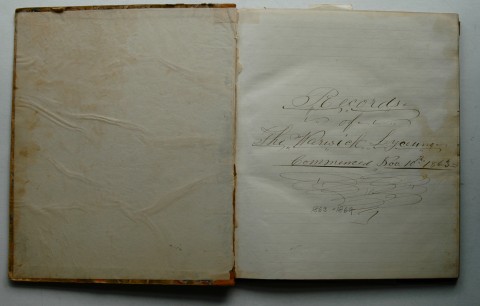 Records
of
The Warwick Lyceum
Commenced Nov. 10th 1863